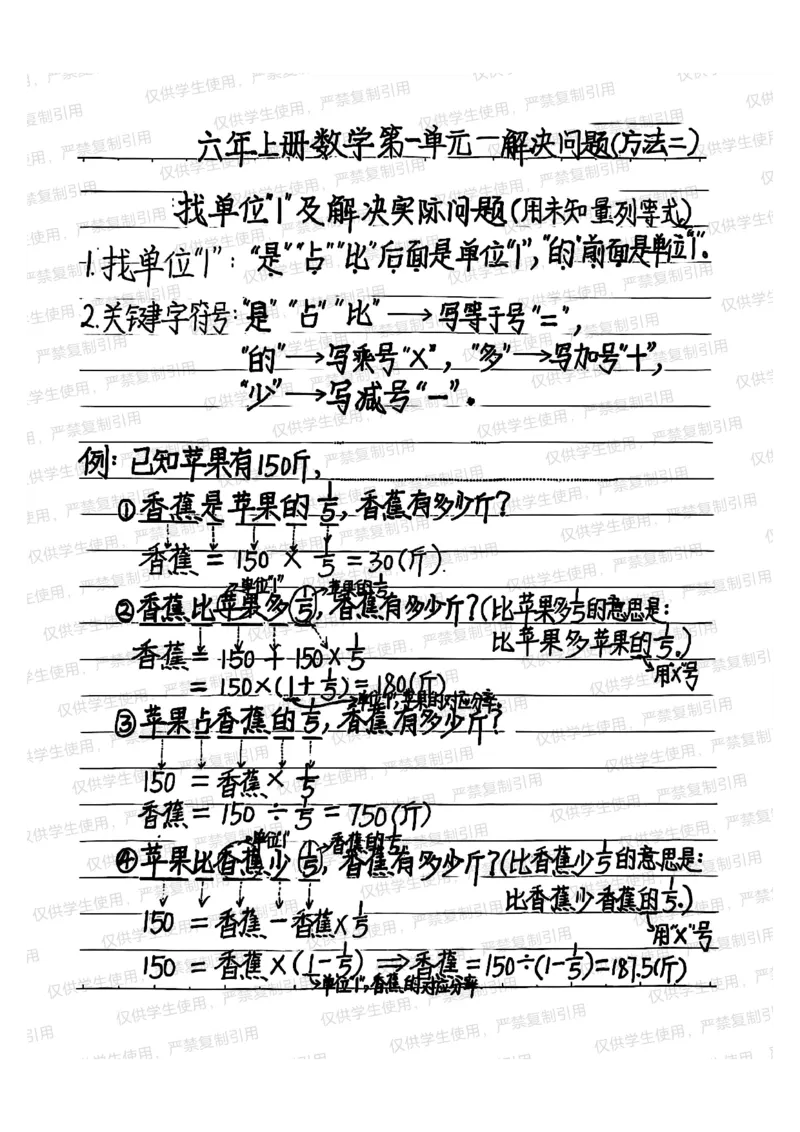 六年上册数学第一单元—解决问题(方法二)
找单位"1"及解决实际问题(用未知量列等式)
1.找单位"1"："是""占""比"后面是单位"1"，"的"前面是单位"1"。
2.关键字符号:"是""占""比"→写等于号"="，
"的"→写乘号"×"，"多"→写加号"+"，
"少"→写减号"−"。
例：已知苹果有150斤，
①香蕉是苹果的1/5，香蕉有多少斤？
香蕉=150×1/5=30(斤).
→单位"1" →苹果的1/5
②香蕉比苹果多1/5，香蕉有多少斤？(比苹果多1/5的意思是：
比苹果多苹果的1/5。)
香蕉=150+150×1/5
→用"×"号
=150×(1+1/5)=180(斤)
→单位"1"，苹果的对应分率
③苹果占香蕉的1/5，香蕉有多少斤？
150=香蕉×1/5
香蕉=150÷1/5=750(斤)
→单位"1" →香蕉的1/5
④苹果比香蕉少1/5，香蕉有多少斤？(比香蕉少1/5的意思是：
比香蕉少香蕉的1/5。)
150=香蕉−香蕉×1/5
→用"×"号
150=香蕉×(1−1/5)⇒香蕉=150÷(1−1/5)=187.5(斤)
→单位"1"，香蕉的对应分率
仅供学生使用，严禁复制引用